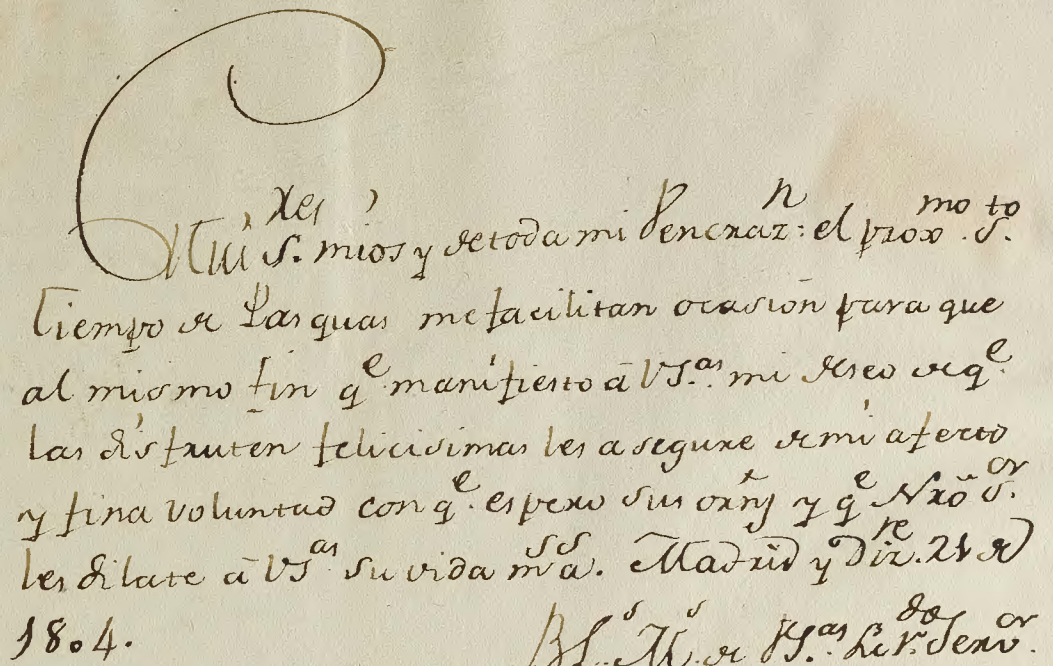 Mui S.res mios y de toda mi Veneraz.n: el prox.mo S.to
tiempo de Pasquas me facilitan ocasion para que
al mismo fin q.e manifiesto â VS.as mi deseo de q.e
las disfruten felicisimas les asegure de mi afecto
y fina voluntad con q.e espero sus orñs y q.e Nrõ S.or
les dilate â VS.as su vida m.s a.s. Madrid y Diz.re 21 de
1804.
B.s L. M.s de VS.as su Serv.or